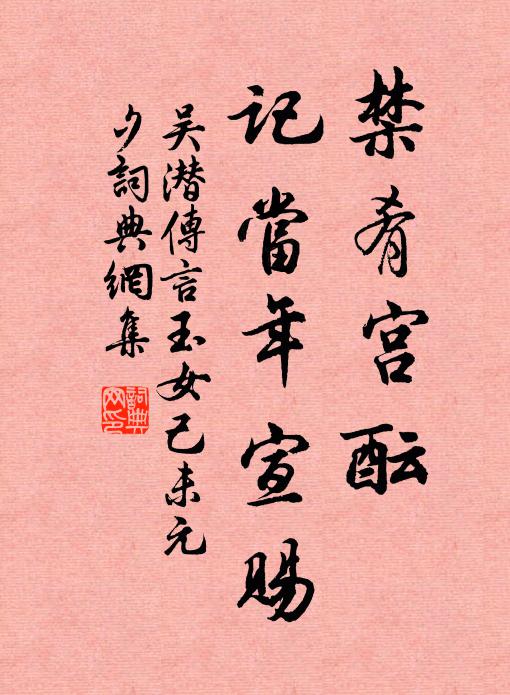 禁肴宫酝
记當年宣赐
吴潜傳言玉女己未元
夕詞典網集
詞典網印